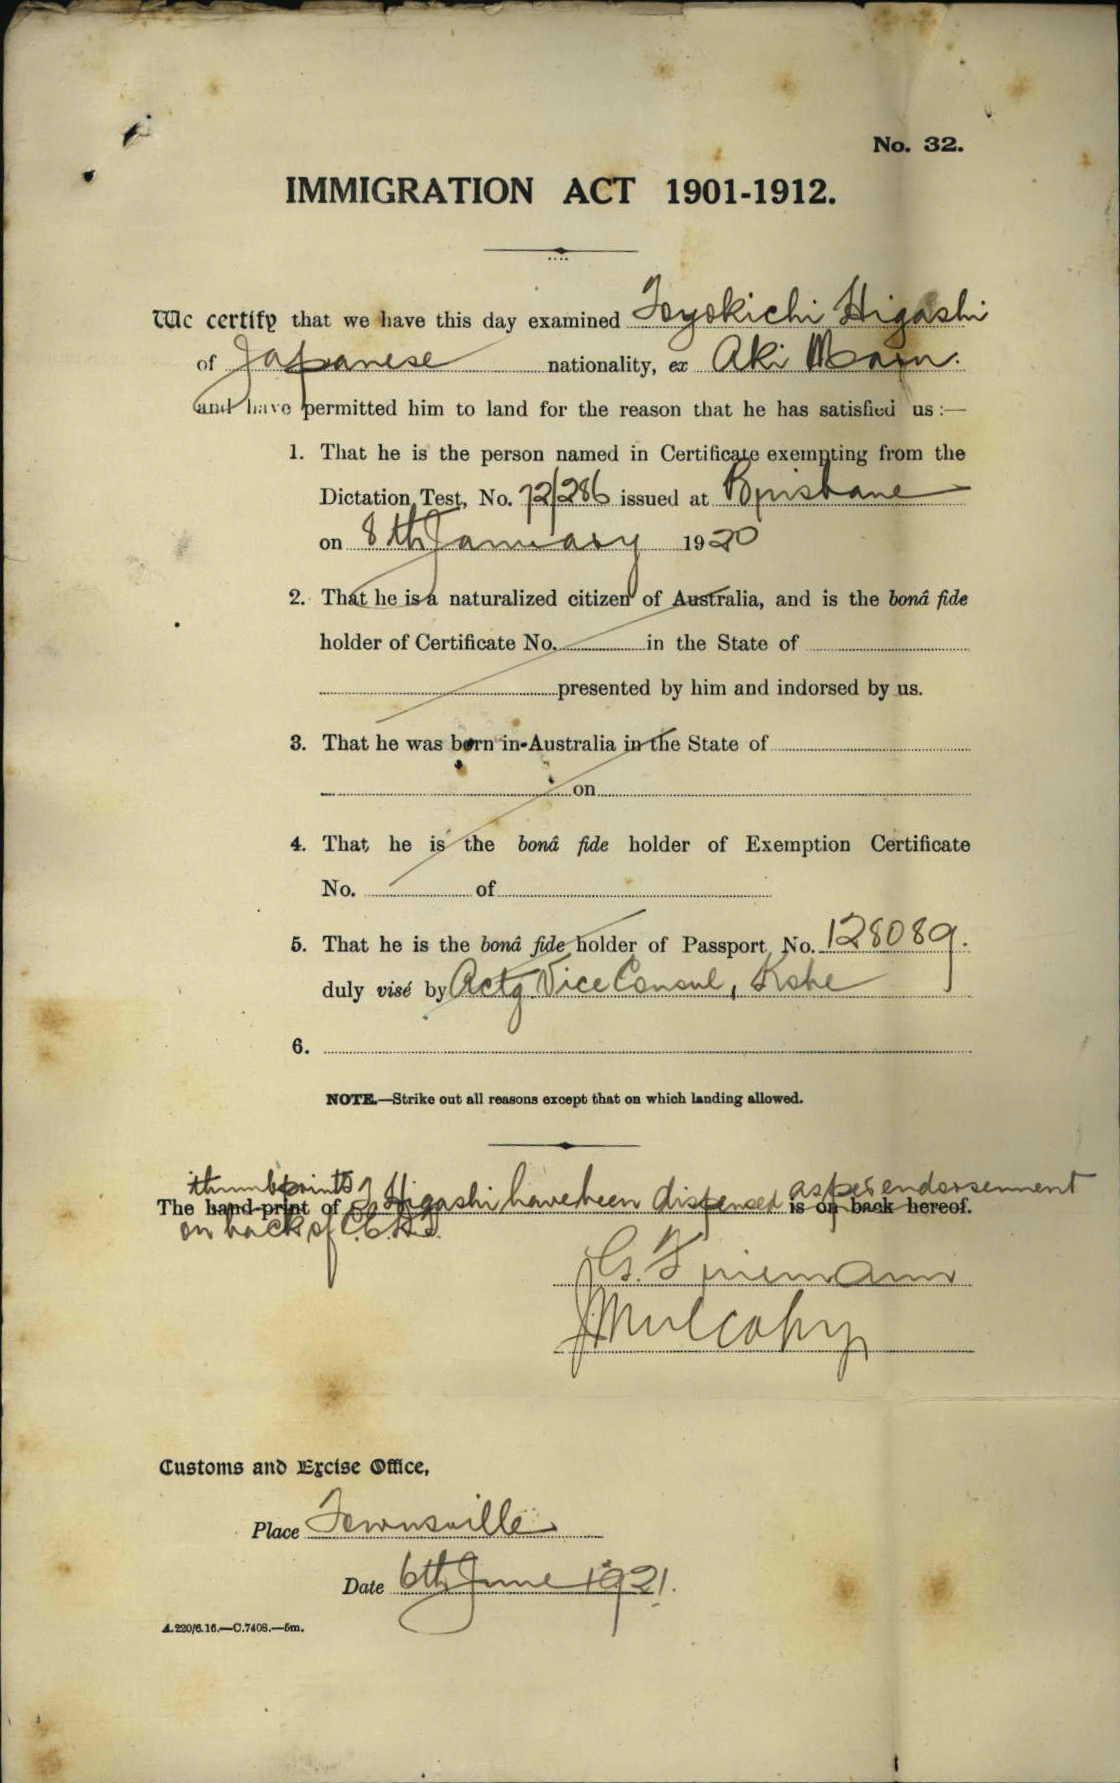 No. 32.
IMMIGRATION ACT 1901-1912.
We certify that we have this day examined Toyokichi Higashi
of Japanese nationality, ex Aki Maru.
and have permitted him to land for the reason that he has satisfied us:—
1. That he is the person named in Certificate exempting from the
Dictation Test, No. 72/286 issued at Brisbane
on 8th January 1920
2. That he is a naturalized citizen of Australia, and is the bonâ fide
holder of Certificate No. in the State of
presented by him and indorsed by us.
3. That he was born in Australia in the State of
on
4. That he is the bonâ fide holder of Exemption Certificate
No. of
5. That he is the bonâ fide holder of Passport No. 128089.
duly visé by Actg Vice Consul, Kobe
6.
NOTE.—Strike out all reasons except that on which landing allowed.
thumbprints as per endorsement
The hand-print of T Higashi have been dispensed is on back hereof.
on back of C.E.D.T.
J Mulcahy
Customs and Excise Office,
Place Townsville
Date 6th June 1921.
A.220/6.16.—C.7408.—5m.